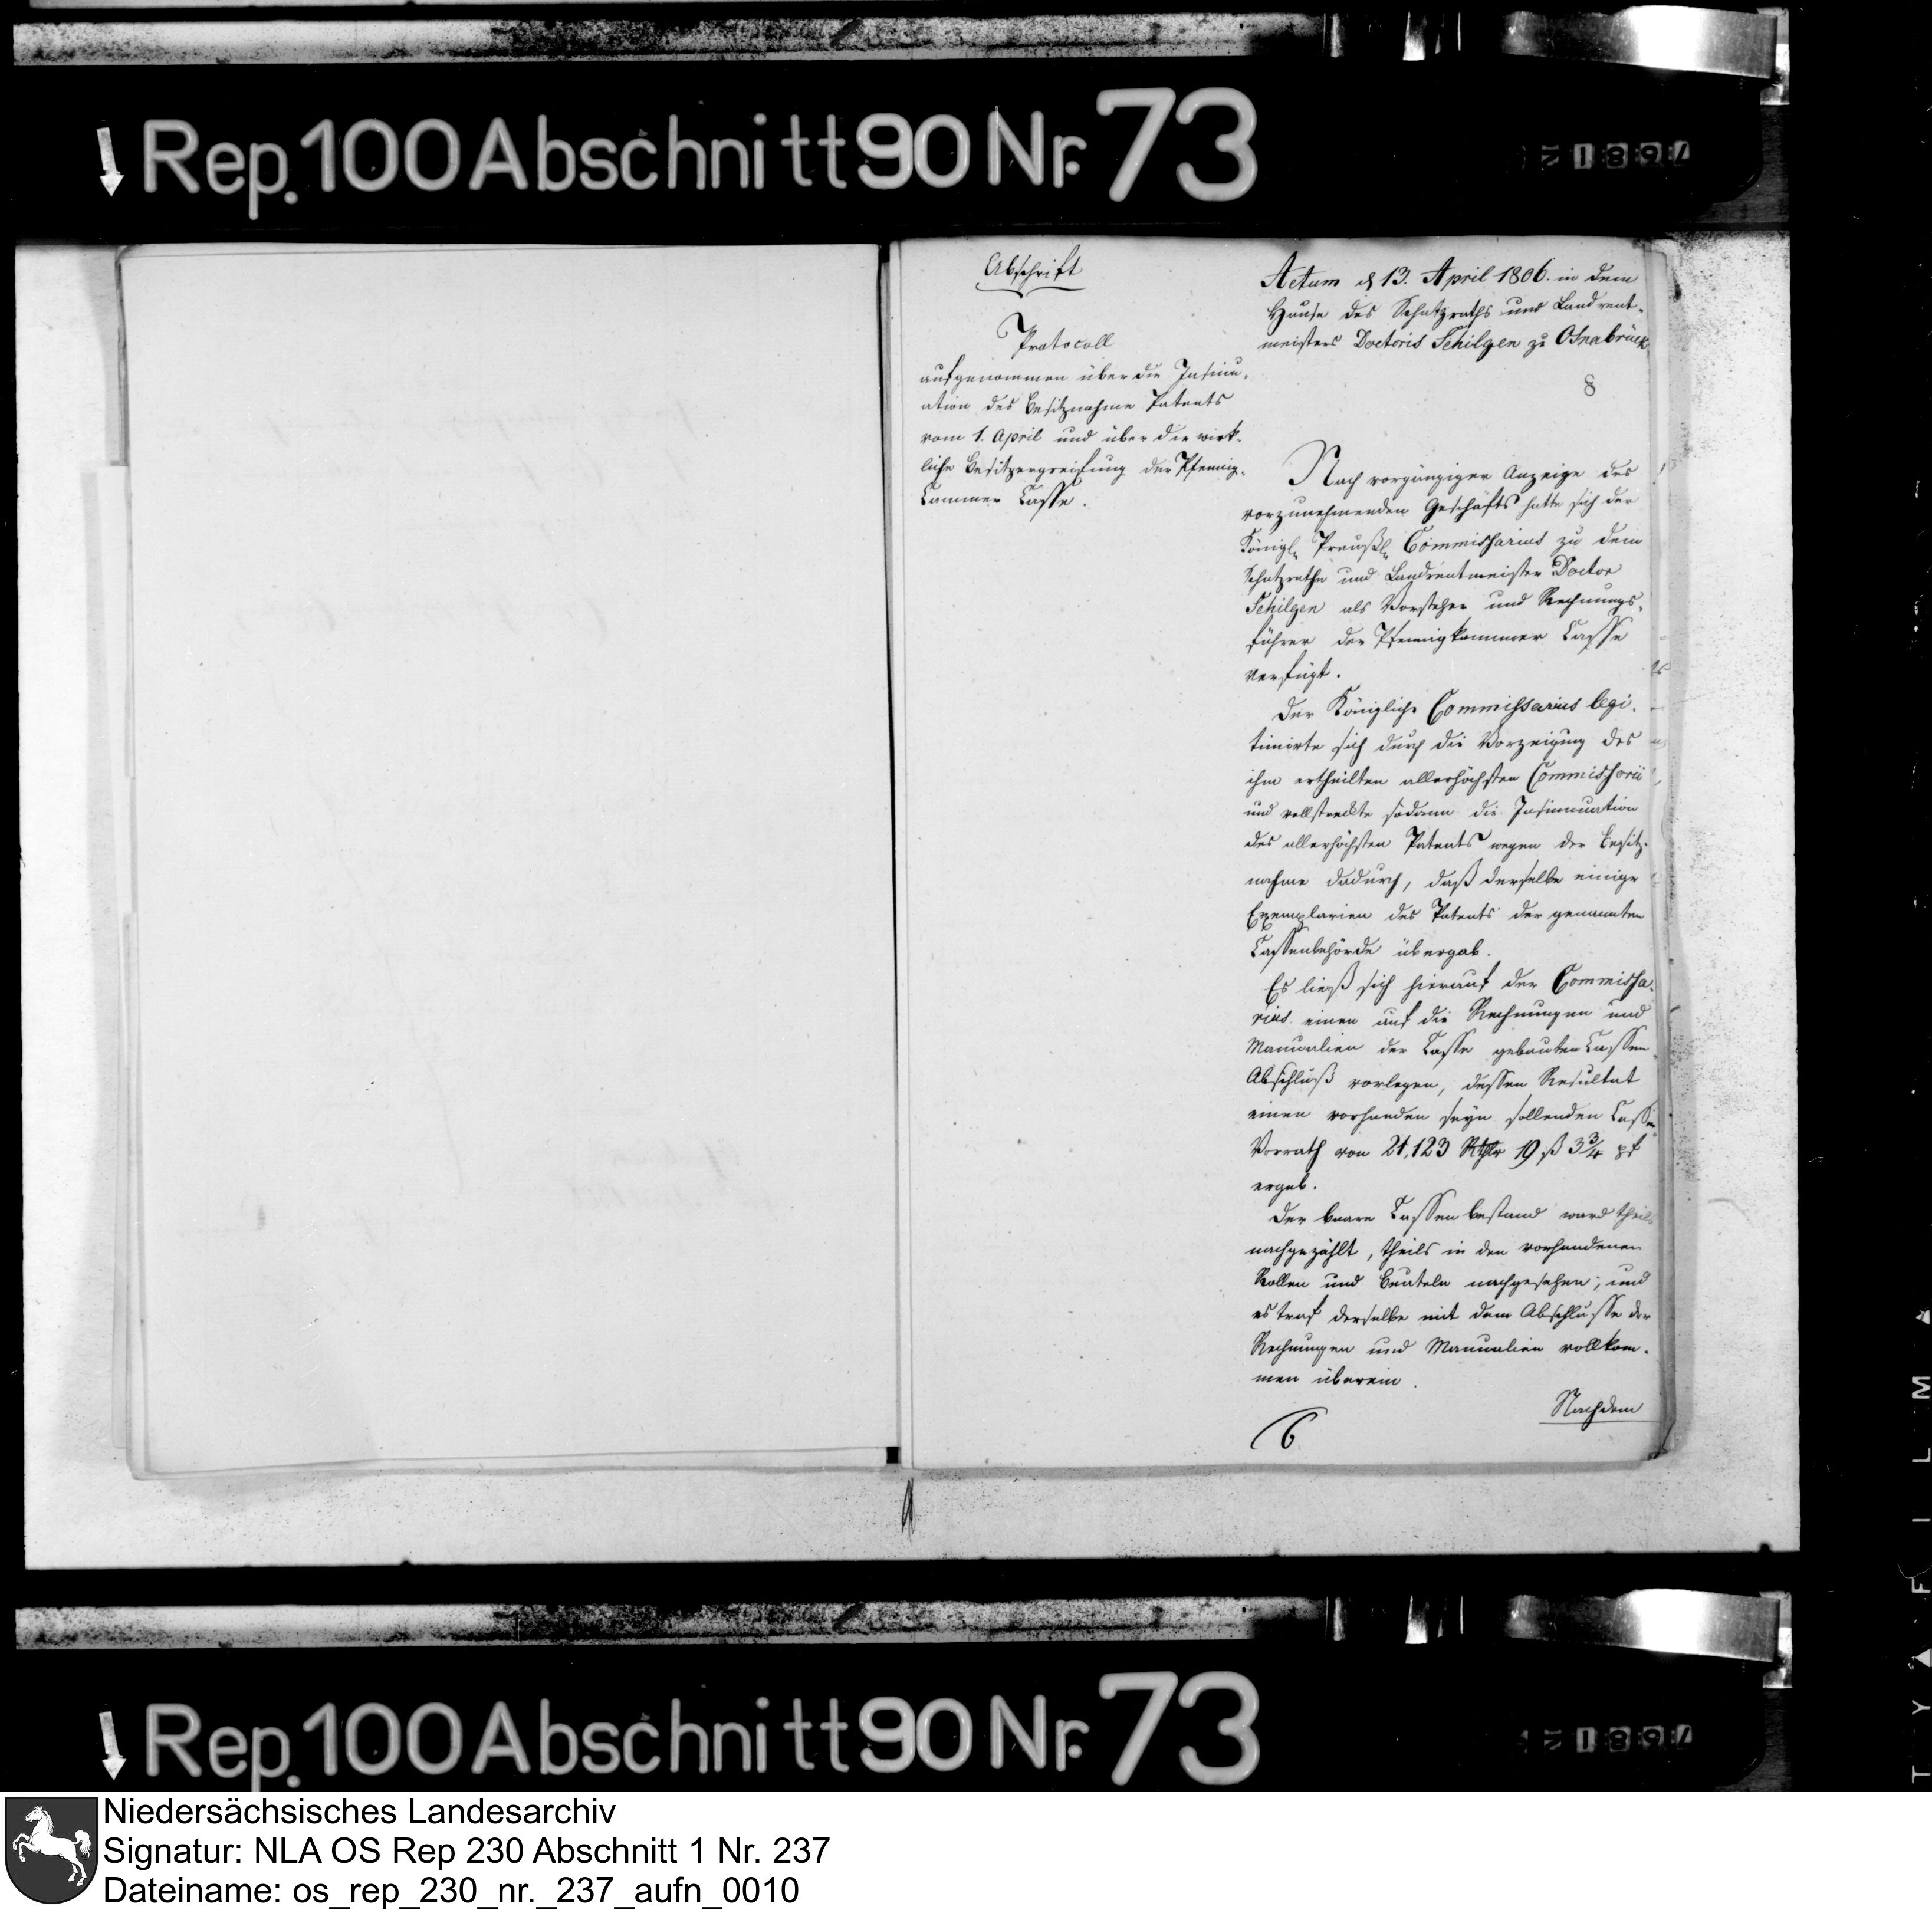 Rep. 100 Abschnitt 90 Nr. 73
Abschrift
Protocoll
aufgenommen über die Insinu-
ation des Besitznahme Patents
vom 1. April und über die wirk-
liche Besitzergreifung der Pfennig-
Cammer Casse.
Actum d 13. April 1806. in dem
Hause des Schatzraths und Landrent-
meisters Doctoris Schilgen zu Osnabrück
8
Nach vorgängiger Anzeige des
vorzunehmenden Geschäfts hatte sich der
Königl. Preußl. Commissarius zu dem
Schatzrathe und Landrentmeister Doctor
Schilgen als Vorsteher und Rechnungs-
führer der Pfennigkammer Casse
verfügt.
Der Königliche Commissarius legi-
timirte sich durch die Vorzeigung des
ihm ertheilten allerhöchsten Commissorii
und vollstreckte sodann die Insinuation
des allerhöchsten Patents wegen der Besitz-
nahme dadurch, daß derselbe einige
Exemplarien des Patents der genannten
Cassenbehörde übergab.
Es ließ sich hierauf der Commissa-
rius einen auf die Rechnungen und
Manualien der Casse gebauten Cassen-
Abschluß vorlegen, dessen Resultat
einen vorhanden seyn sollenden Cassen
Vorrath von 21,123 Rthlr 19 ß 3 3/4 pf
ergab.
Der baare Cassenbestand ward theils
nachgezählt, theils in den vorhandenen
Rollen und Beuteln nachgesehen, und
es traf derselbe mit dem Abschlusse der
Rechnungen und Manualien vollkom-
men überein.
Nachdem
6
Rep. 100 Abschnitt 90 Nr. 73
Niedersächsisches Landesarchiv
Signatur: NLA OS Rep 230 Abschnitt 1 Nr. 237
Dateiname: os_rep_230_nr._237_aufn_0010